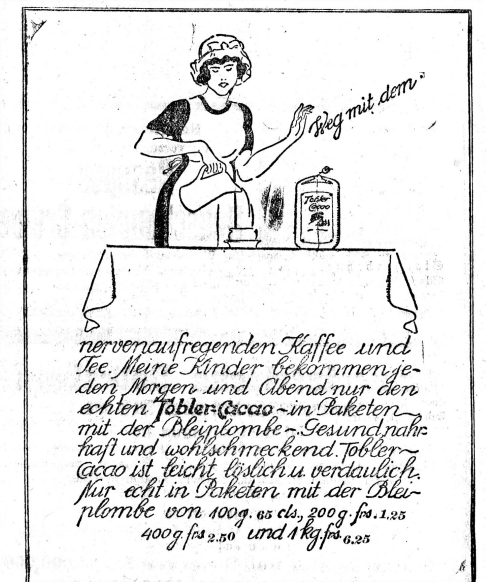 Weg mit dem
Tobler
Cacao
nervenaufregenden Kaffee und
Tee. Meine Kinder bekommen je-
den Morgen und Abend nur den
echten Tobler-Cacao - in Paketen
mit der Bleiplombe - Gesund nahr-
haft und wohlschmeckend. Tobler-
Cacao ist leicht löslich u. verdaulich.
Nur echt in Paketen mit der Blei-
plombe von 100 g. 65 cts., 200 g. frs. 1.25
400 g. frs 2.50 und 1 kg. frs 6.25